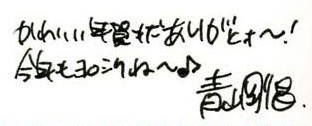 かわいい年賀状ありがとォ〜!
今年もヨロシクね〜♪
青山剛昌.